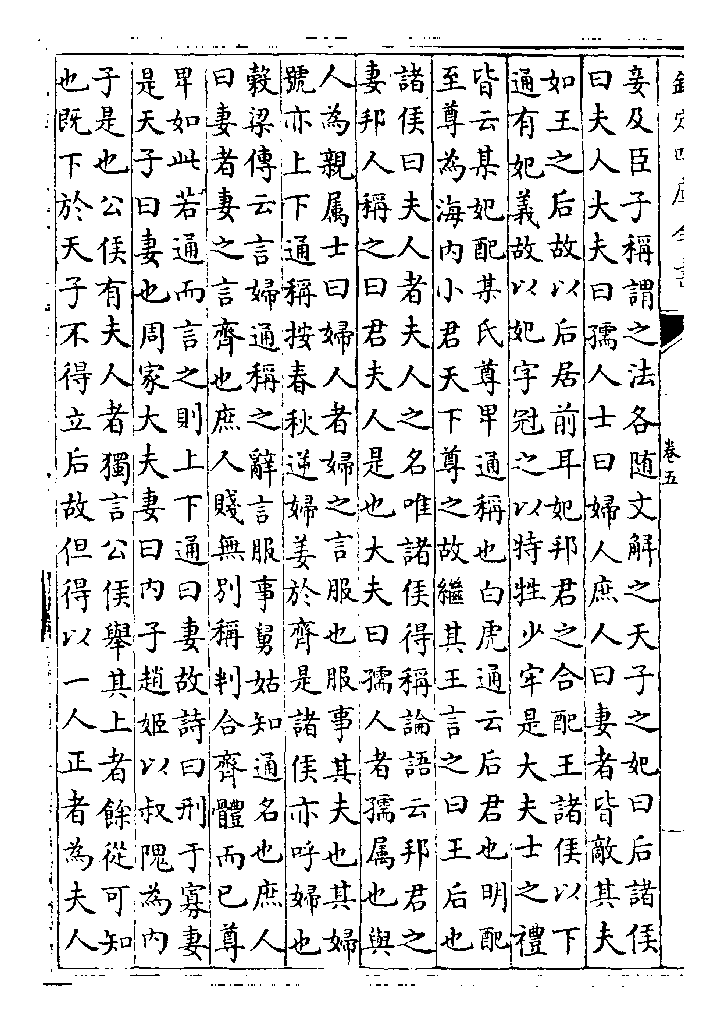 欽定四庫全書
卷五
妾及臣子稱謂之法各随文解之天子之妃曰后諸侯
曰夫人大夫曰孺人士曰婦人庶人曰妻者皆敵其夫
如王之后故以后居前耳妃邦君之合配王諸侯以下
通有妃義故以妃字冠之以特牲少牢是大夫士之禮
皆云某妃配某氏尊卑通稱也白虎通云后君也明配
至尊為海内小君天下尊之故繼其王言之曰王后也
諸侯曰夫人者夫人之名唯諸侯得稱論語云邦君之
妻邦人稱之曰君夫人是也大夫曰孺人者孺属也與
人為親属士曰婦人者婦之言服也服事其夫也其婦
號亦上下通稱按春秋逆婦姜於齊是諸侯亦呼婦也
榖梁傳云言婦通稱之辭言服事舅姑知通名也庶人
曰妻者妻之言齊也庶人賤無别稱判合齊體而已尊
卑如此若通而言之則上下通曰妻故詩曰刑于寡妻
是天子曰妻也周家大夫妻曰内子趙姬以叔隗為内
子是也公侯有夫人者獨言公侯舉其上者餘從可知
也既下於天子不得立后故但得以一人正者為夫人